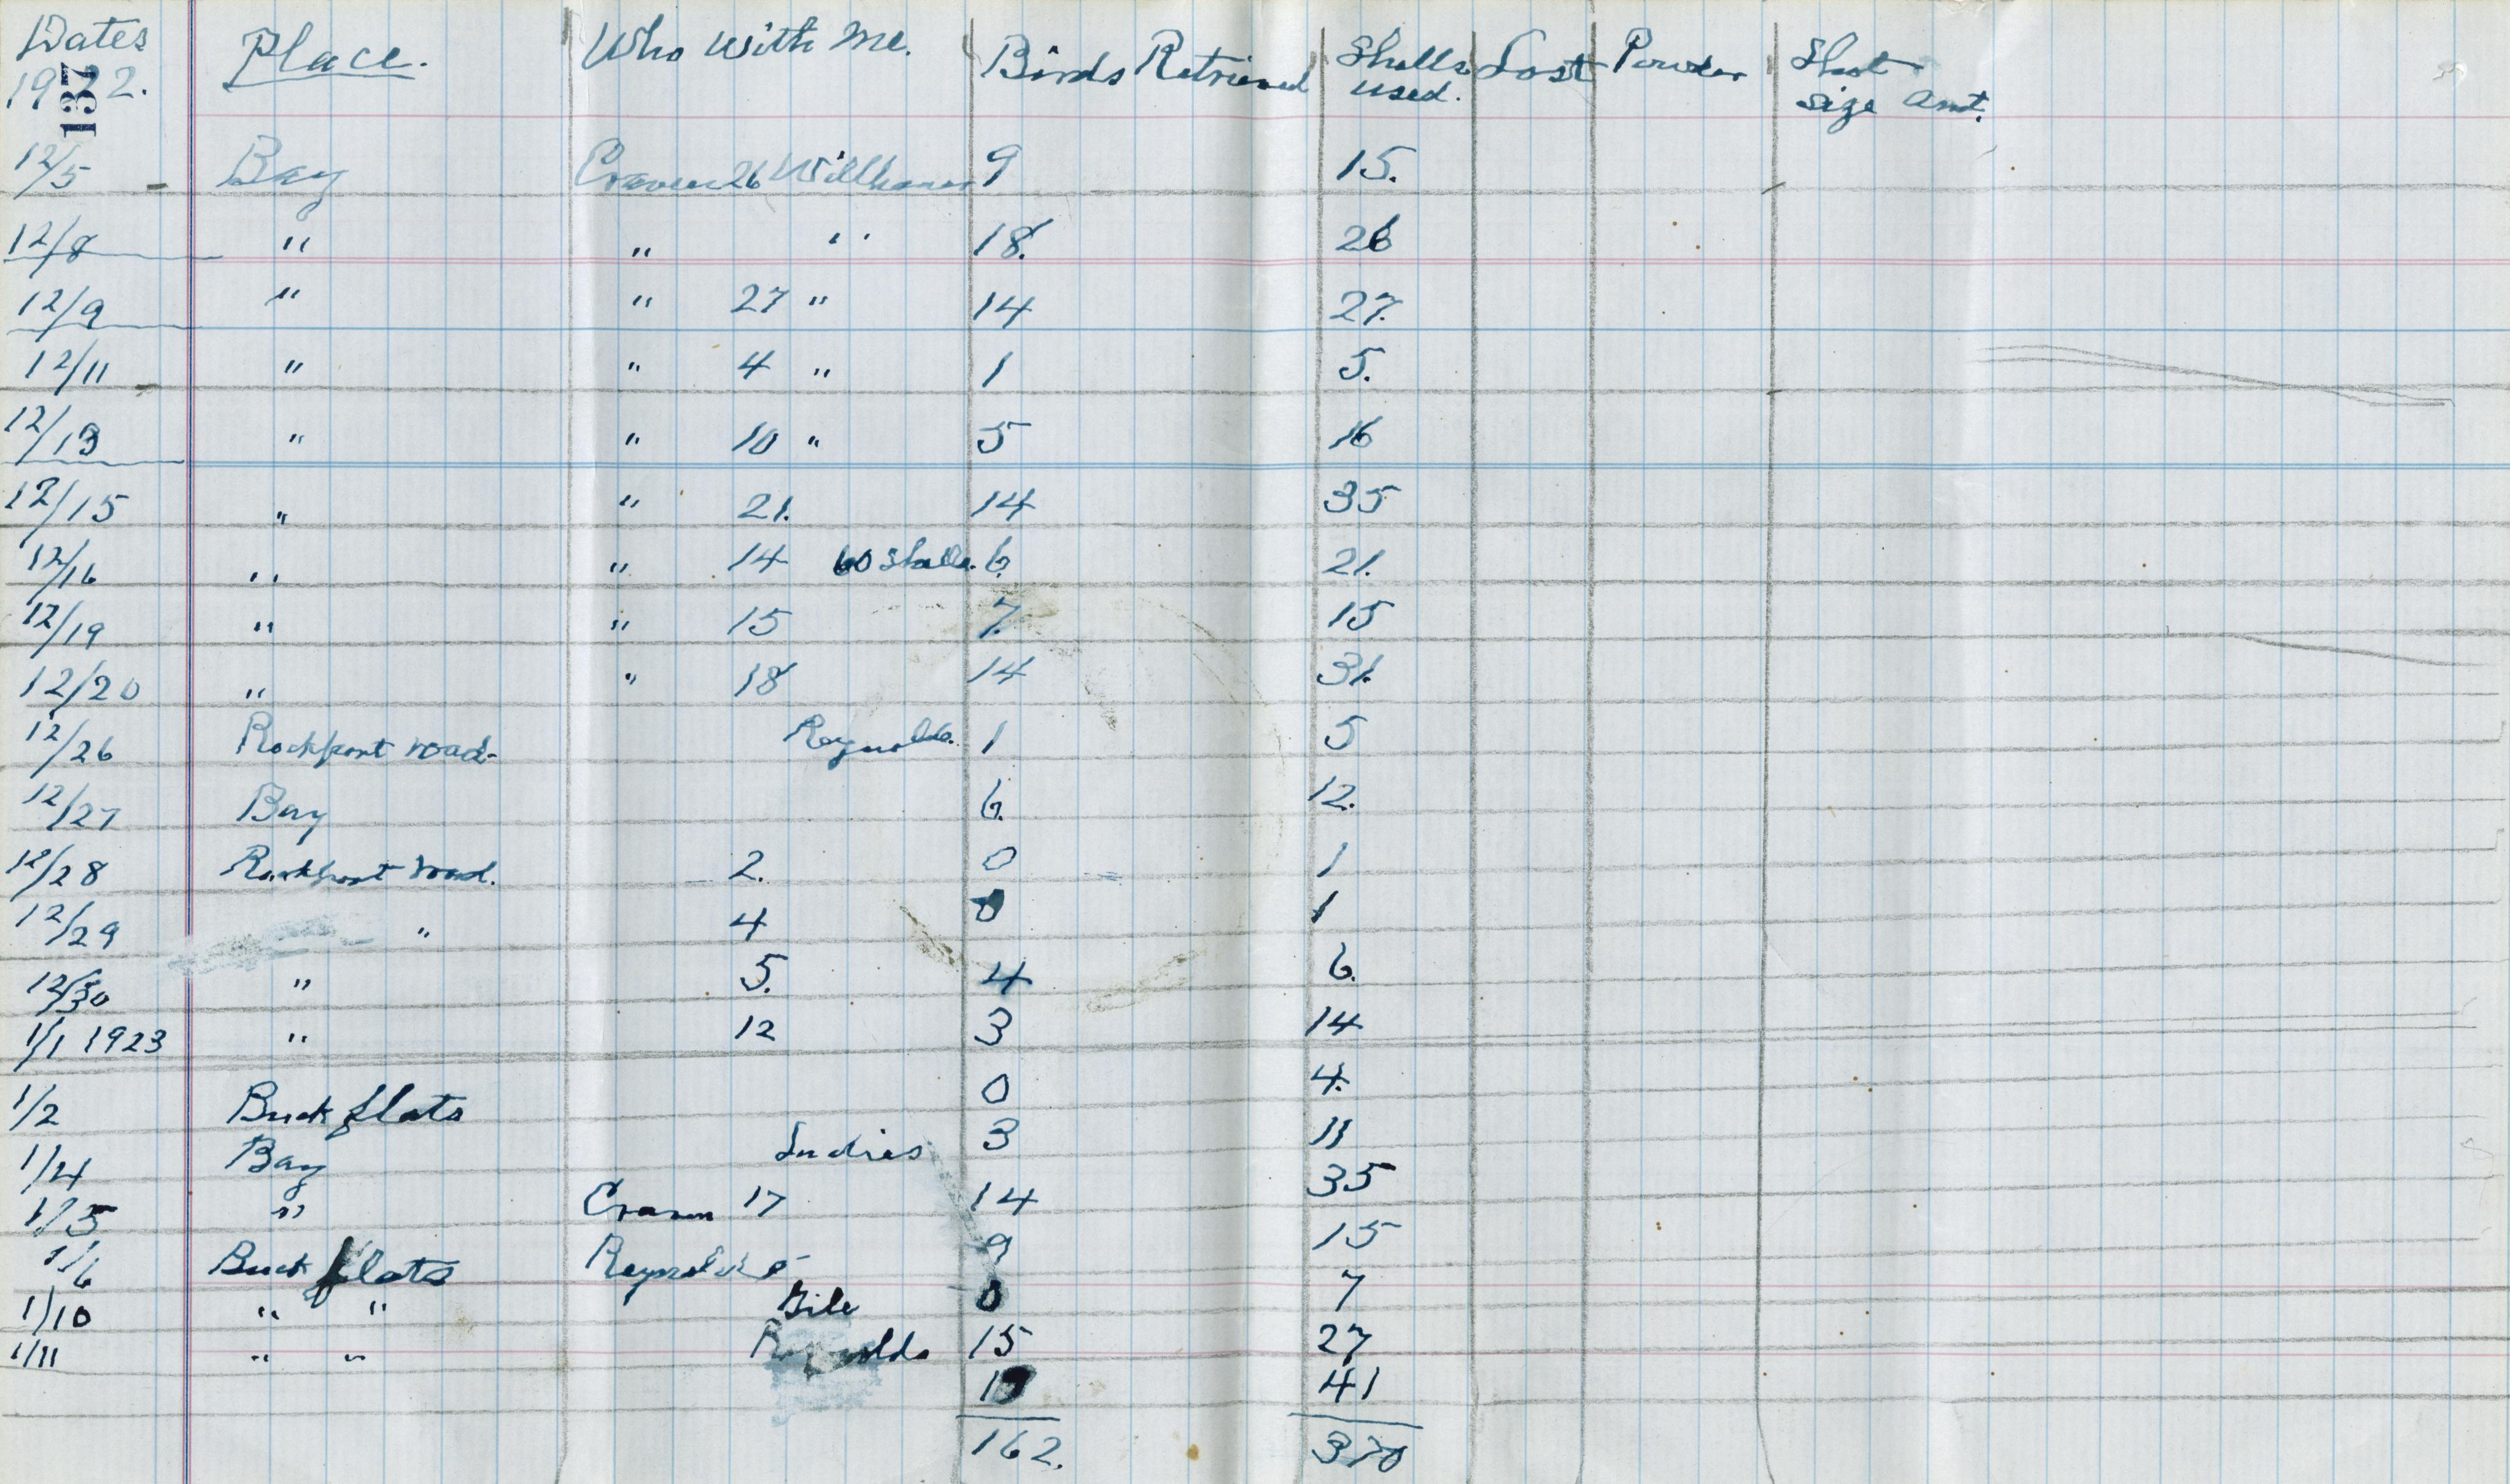 Dates Place. Who with me. Birds Retrieved Shells used. Lost Powder Shot size amt.
1922.
137
12/5 Bay Craven 26 Williams 9 15.
12/8 " " " 18. 26
12/9 " " 27 " 14 27.
12/11 " " 4 " 1 5.
12/13 " " 10 " 5 16
12/15 " " 21. 14 35
12/16 " " 14 60 shells. 6. 21.
12/19 " " 15 7. 15
12/20 " " 18 14 31.
12/26 Rockport road- Reynolds. 1 5
12/27 Bay 6. 12.
12/28 Rockport road. 2. 0 1
12/29 " 4 0 1
12/30 " 5. 4 6.
1/1 1923 " 12 3 14
1/2 Buck flats 0 4.
1/4 Bay 3 11
1/5 " Craven 17 14 35
1/6 Buck flats Reynolds 9 15
1/10 " " 0 7
1/11 " " Reynolds 15 27
41
162. 370